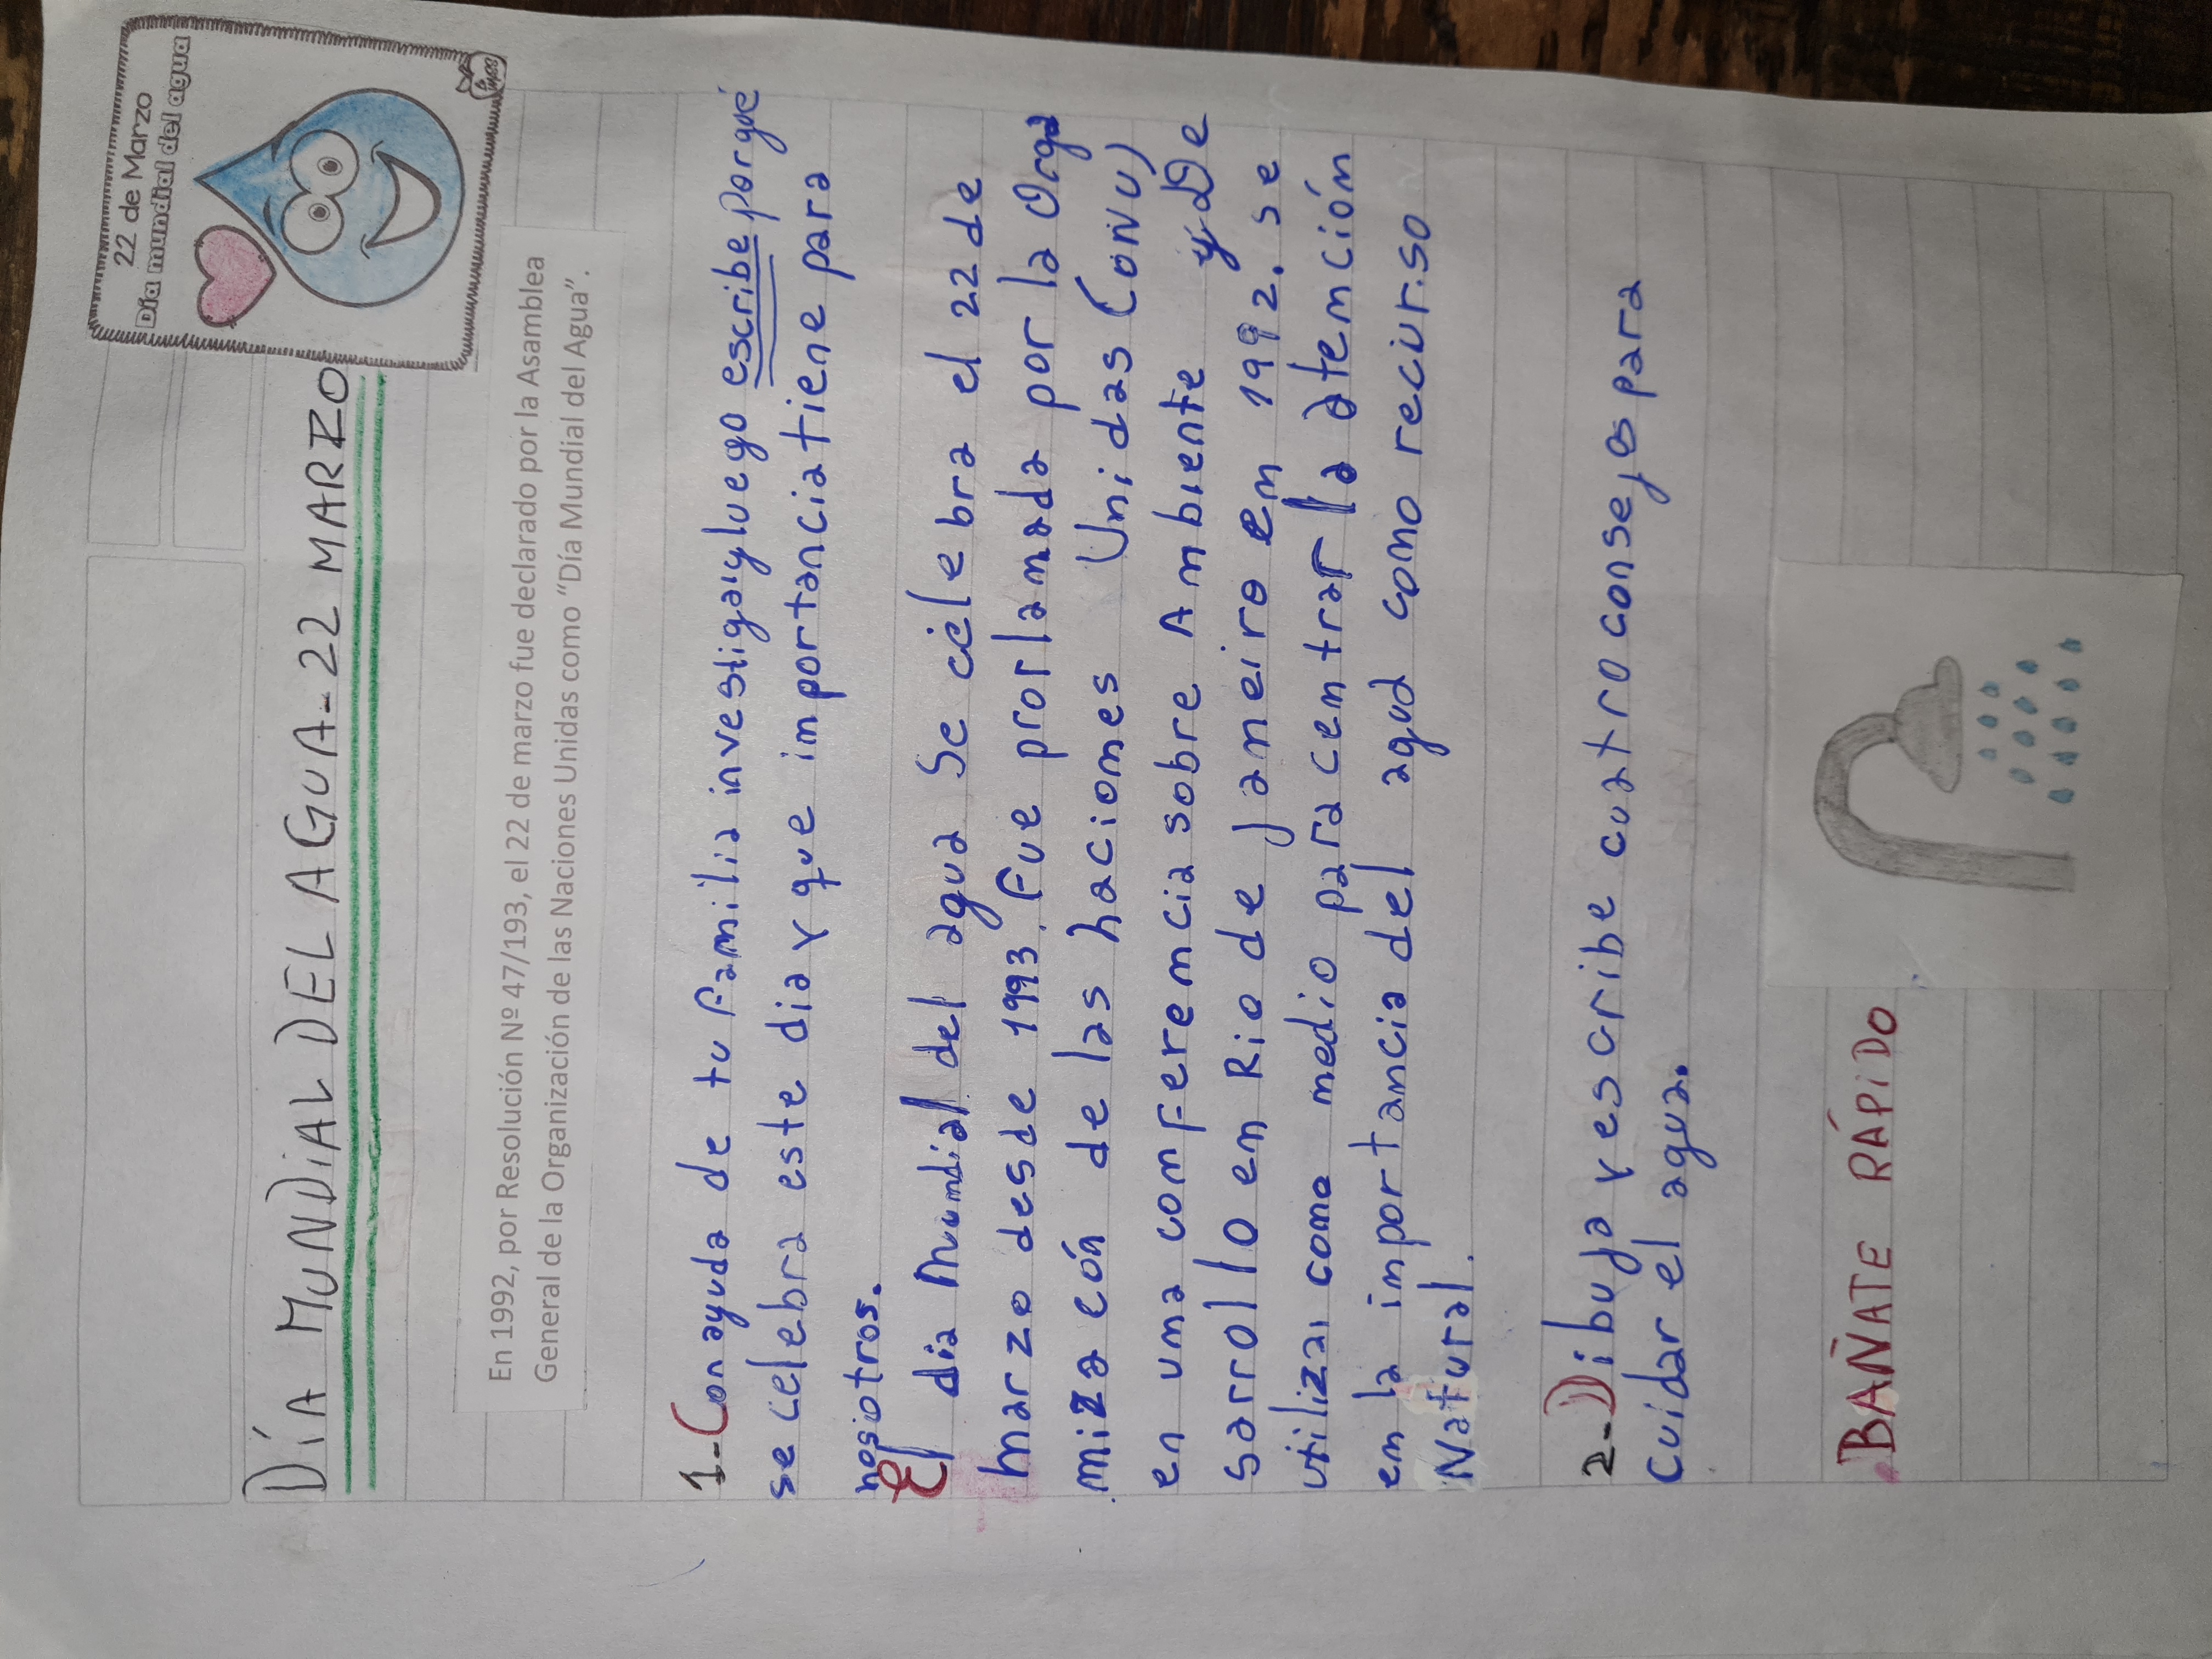 22 de Marzo
Día mundial del agua
DÍA MUNDIAL DEL AGUA-22 MARZO
En 1992, por Resolución Nº 47/193, el 22 de marzo fue declarado por la Asamblea
General de la Organización de las Naciones Unidas como “Día Mundial del Agua”.
1-Con ayuda de tu familia investiga y luego escribe porqué
se celebra este dia y que importancia tiene para
nosotros.
El dia Mumdial del agua Se celebra el 22 de
marzo desde 1993. Fue prorlamada por la Orga
miza eón de las haciomes Unidas (ONU)
en uma comferemcia sobre Ambiente y De
sarrollo em Rio de janeiro em 1992. se
utiliza como medio para cemtrar la atemción
em la importancia del agua como recurso
Natural.
2-Dibuja y escribe cuatro consejos para
cuidar el agua.
BAÑATE RÁPIDO